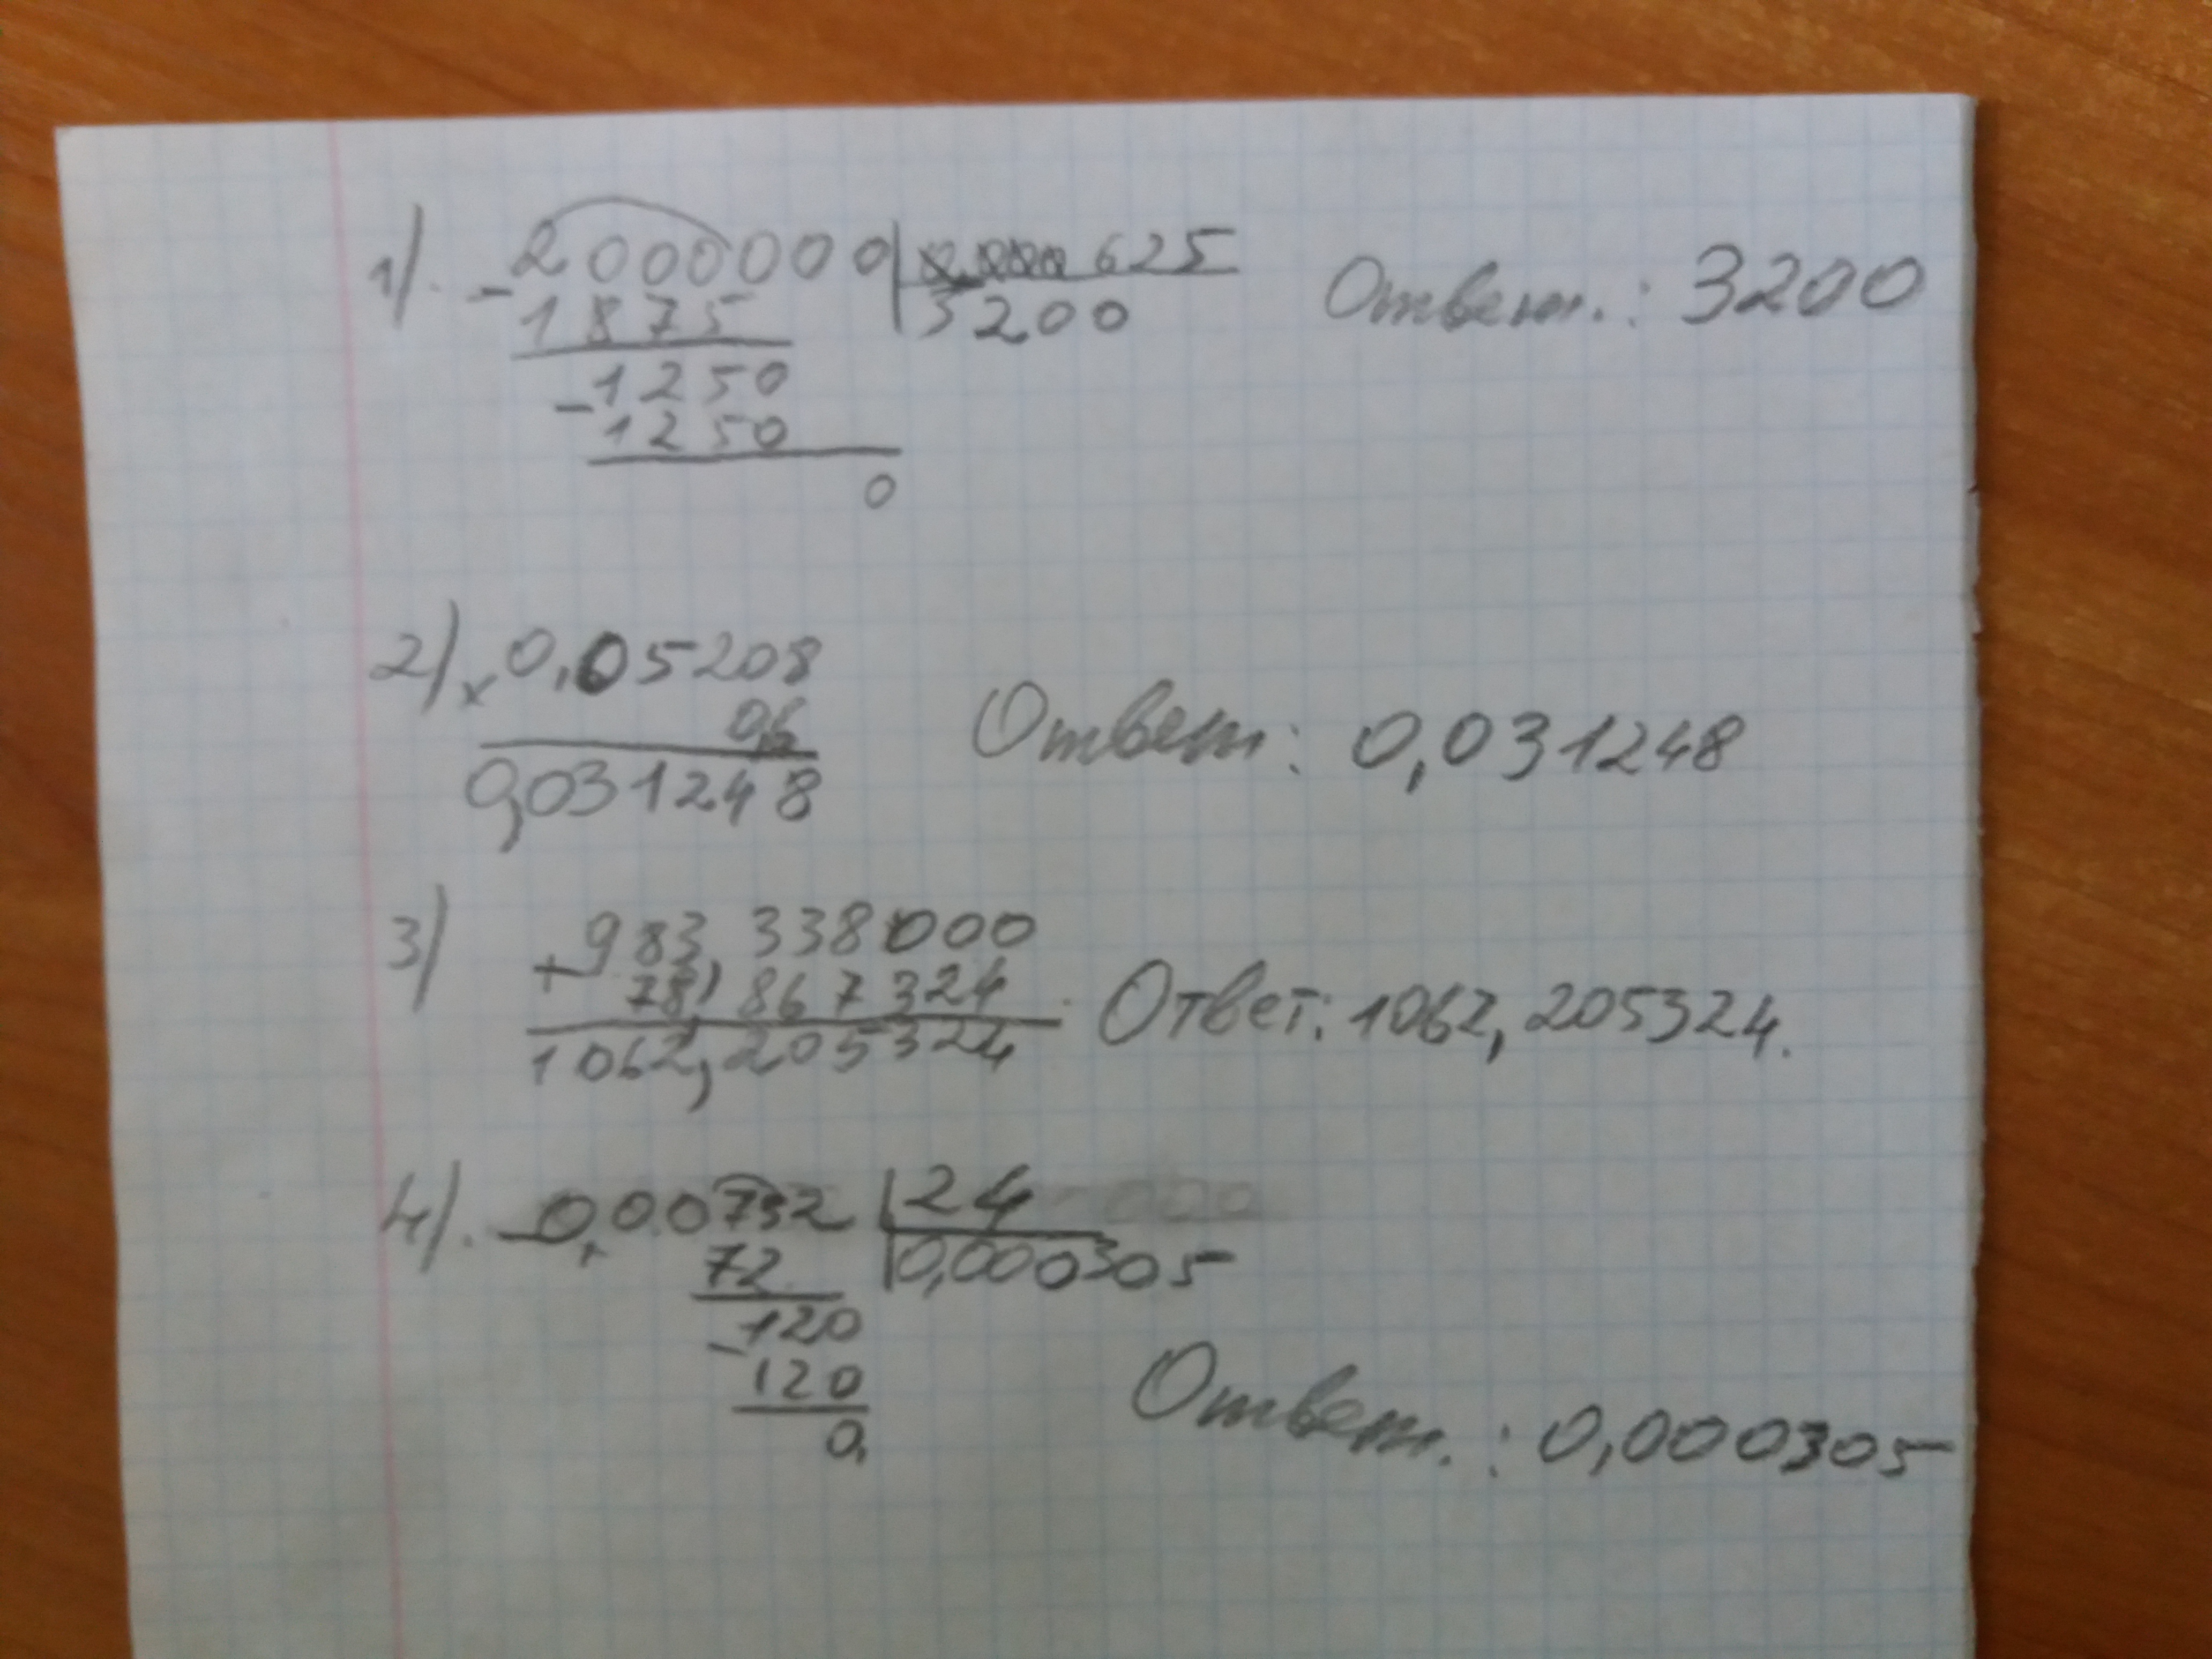 1). - 2000000 625 Ответ.: 3200
1875 3200
- 1250
1250
0
2) x 0,05208
0,6 Ответ: 0,031248
0,031248
3) + 983,338000
78,867324 Ответ: 1062,205324.
1062,205324
4). - 0,00732 24
72 0,000305
- 120
120
0,
Ответ.: 0,000305